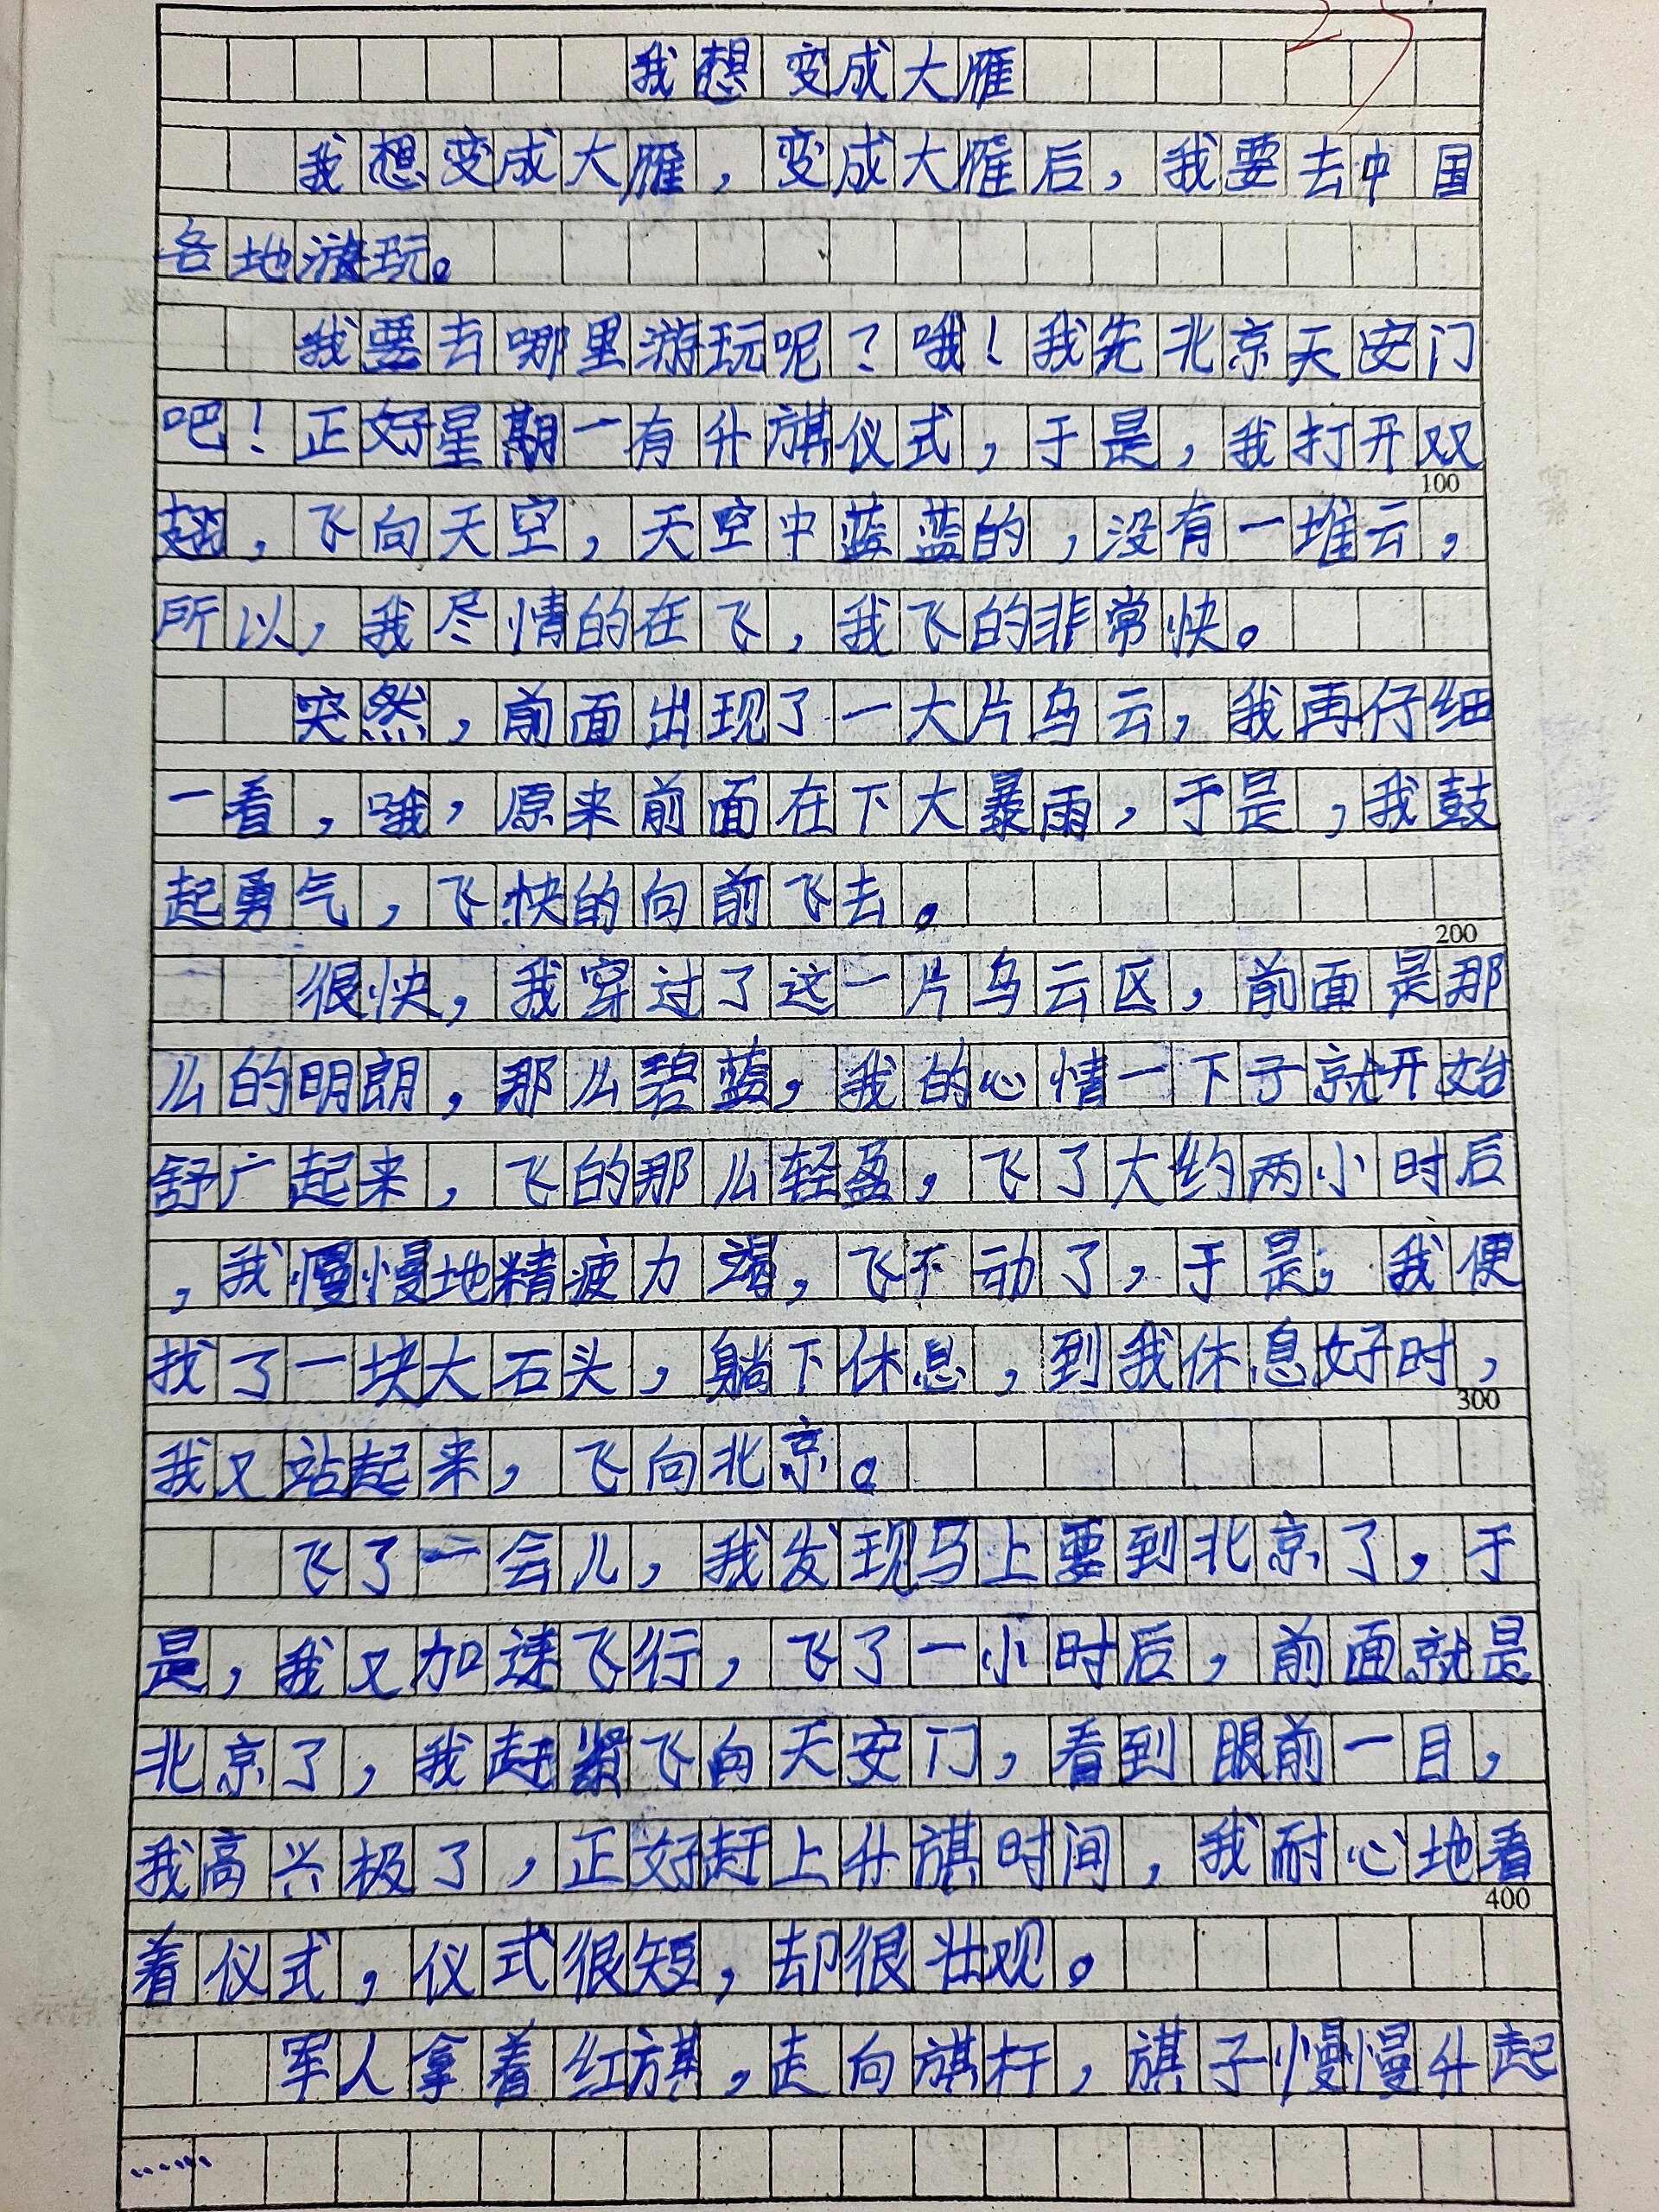 25
我想变成大雁
我想变成大雁，变成大雁后，我要去中国
各地游玩。
我要去哪里游玩呢？哦！我先北京天安门
吧！正好星期一有升旗仪式，于是，我打开双
100
翅，飞向天空，天空中蓝蓝的，没有一堆云，
所以，我尽情的在飞，我飞的非常快。
突然，前面出现了一大片乌云，我再仔细
一看，哦，原来前面在下大暴雨，于是，我鼓
起勇气，飞快的向前飞去。
200
很快，我穿过了这一片乌云区，前面是那
么的明朗，那么碧蓝，我的心情一下子就开始
舒广起来，飞的那么轻盈，飞了大约两小时后
，我慢慢地精疲力竭，飞不动了，于是，我便
找了一块大石头，躺下休息，到我休息好时，
300
我又站起来，飞向北京。
飞了一会儿，我发现马上要到北京了，于
是，我又加速飞行，飞了一小时后，前面就是
北京了，我赶紧飞向天安门，看到眼前一目，
我高兴极了，正好赶上升旗时间，我耐心地看
400
着仪式，仪式很短，却很壮观。
军人拿着红旗，走向旗杆，旗子慢慢升起
……